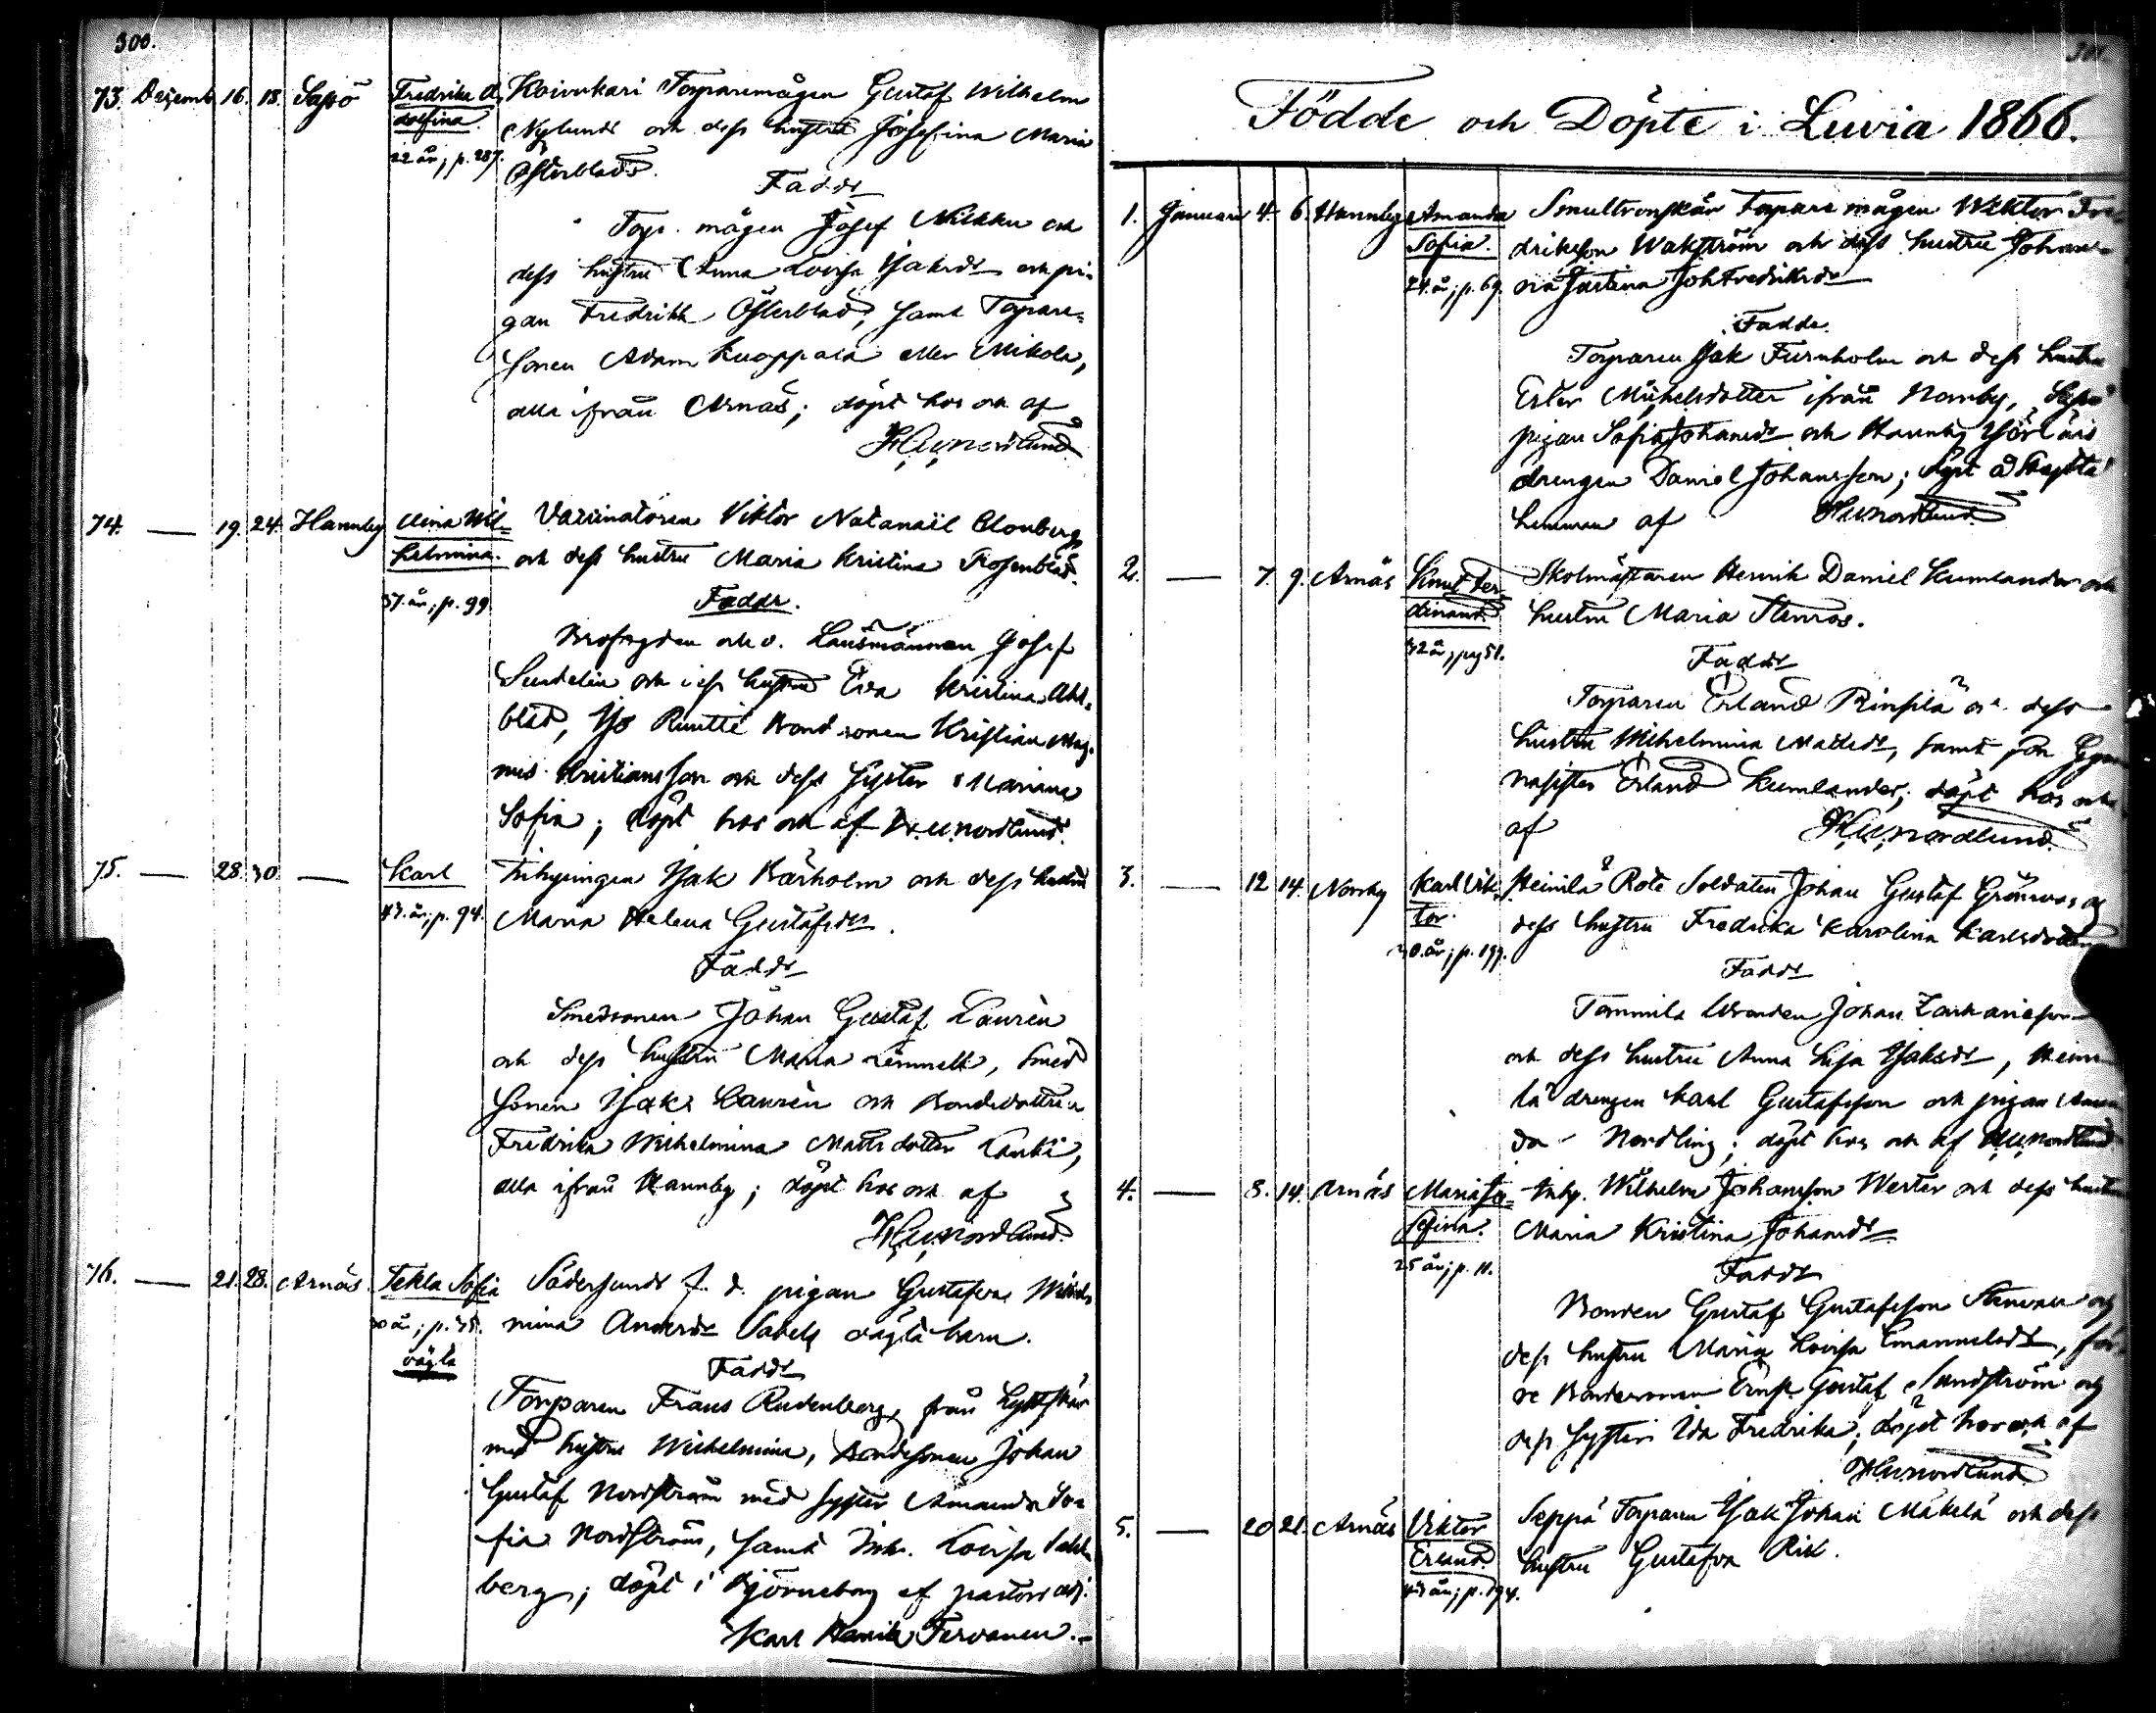 300.
73. Dezemb. 16. 18. Sassö Fredrika A- Koivukari Torparemågen Gustaf Wilhelm
dolfina. Nylund och dess hustru Josefina Maria
22 år; p. 287. Österblad.
Faddr
Torp. mågen Josef Nikku och
dess hustru Anna Lovisa Isaksdr och pi-
gan Fredrika Österblad, samt Torpare-
sonen Adam Kuoppala eller Mikola,
alla ifrån Arnäs; döpt hos och af
Nordlund
74. — 19. 24. Hannby Alina Wil- Vaccinatören Viktor Natanaël Blomberg
helmina. och dess hustru Maria Kristina Rosenblad.
37 år; p. 99
Faddr.
Brofogden och v. Länsmannen Josef
Sundelin och dess hustru Eva Kristina Ahl-
blad, Bondsonen Kristian Mag-
nus Kristiansson och dess syster Mariana
Sofia; döpt hos och af Nordlund.
75. — 28. 30 — Karl Inhysingen Isak Bärholm och dess hustru
43 år; p. 94. Maria Helena Gustafsdr.
Faddr
Smedsonen Johan Gustaf Laurén
och dess hustru Maria, Smed
sonen Isak Laurén och Bondedottren
Fredrika Wilhelmina Mattsdotter Lanki,
alla ifrån Hannby; döpt hos och af
Nordlund.
76. — 21. 28. Arnäs Tekla Sofia Södersunds f. d. pigan Gustafva Wilhel
30 år; p. 35. mina Andersdr Sabels oägta barn.
oägta
Faddr
Torparen Frans Rudenberg, från Lyttskär
med hustru Wilhelmina, Bondesonen Johan
Gustaf Nordström med syster Amanda So-
fia Nordström, samt Inh. Lovisa
berg; döpt i Björneborg af pastors adj.
Karl Henrik Tervonen.
301.
Födde och Döpte i Luvia 1866.
1. Januari 4. 6. Hannby Amanda Smultronskär Torpare mågen Wiktor Fre-
Sofia. driksson Wakström och dess hustru Johan-
24 år; p. 69. na Justina Joh Fredriksdr
Faddr.
Torparen Isak Furuholm och dess hustru
Ester Mickelsdotter ifrån Norrby, Sassö
pigan Sofia Johansdr och Hannby
drengen Daniel Johansson; döpt å
hemman af Nordlund
2. — 7. 9. Arnäs Knut Fer- Skolmästaren Henrik Daniel Kumlander och
dinand. hustru Maria Stenros.
32 år; pag 51.
Faddr
Torparen Erland och dess
hustru Wilhelmina Mattsdr, samt Gym
nasisten Erland Kumlander; döpt hos och
af Nordlund
3. — 12 14. Norrby Karl Vik- Heinilä Rote Soldaten Johan Gustaf Grönroos och
tor. dess hustru Fredrika Karolina Karlsdotter
30 år; p. 199.
Faddr
Tommila Bonden Johan Zachariasson
och dess hustru Anna Lisa Isaksdr, Heini
lä drengen Karl Gustafsson och pigan Aman
da Nordling; döpt hos och af Nordlund
4. — 8. 14. Arnäs Maria Jo- Inhy. Wilhelm Johansson Wester och dess hustru
sefina. Maria Kristina Johansdr
25 år; p. 11.
Faddr
Bonden Gustaf Gustafsson Stenroos och
dess hustru Maria Lovisa Emanuelsdr, för-
re Bondesonen Ernst Gustaf Sandström och
dess syster Ida Fredrika; döpt hos och af
Nordlund
5. — 20 21. Arnäs Viktor Seppä Torparen Isak Johan Mäkelä och dess
Erland. hustru Gustafva Rik.
43 år; p. 194.